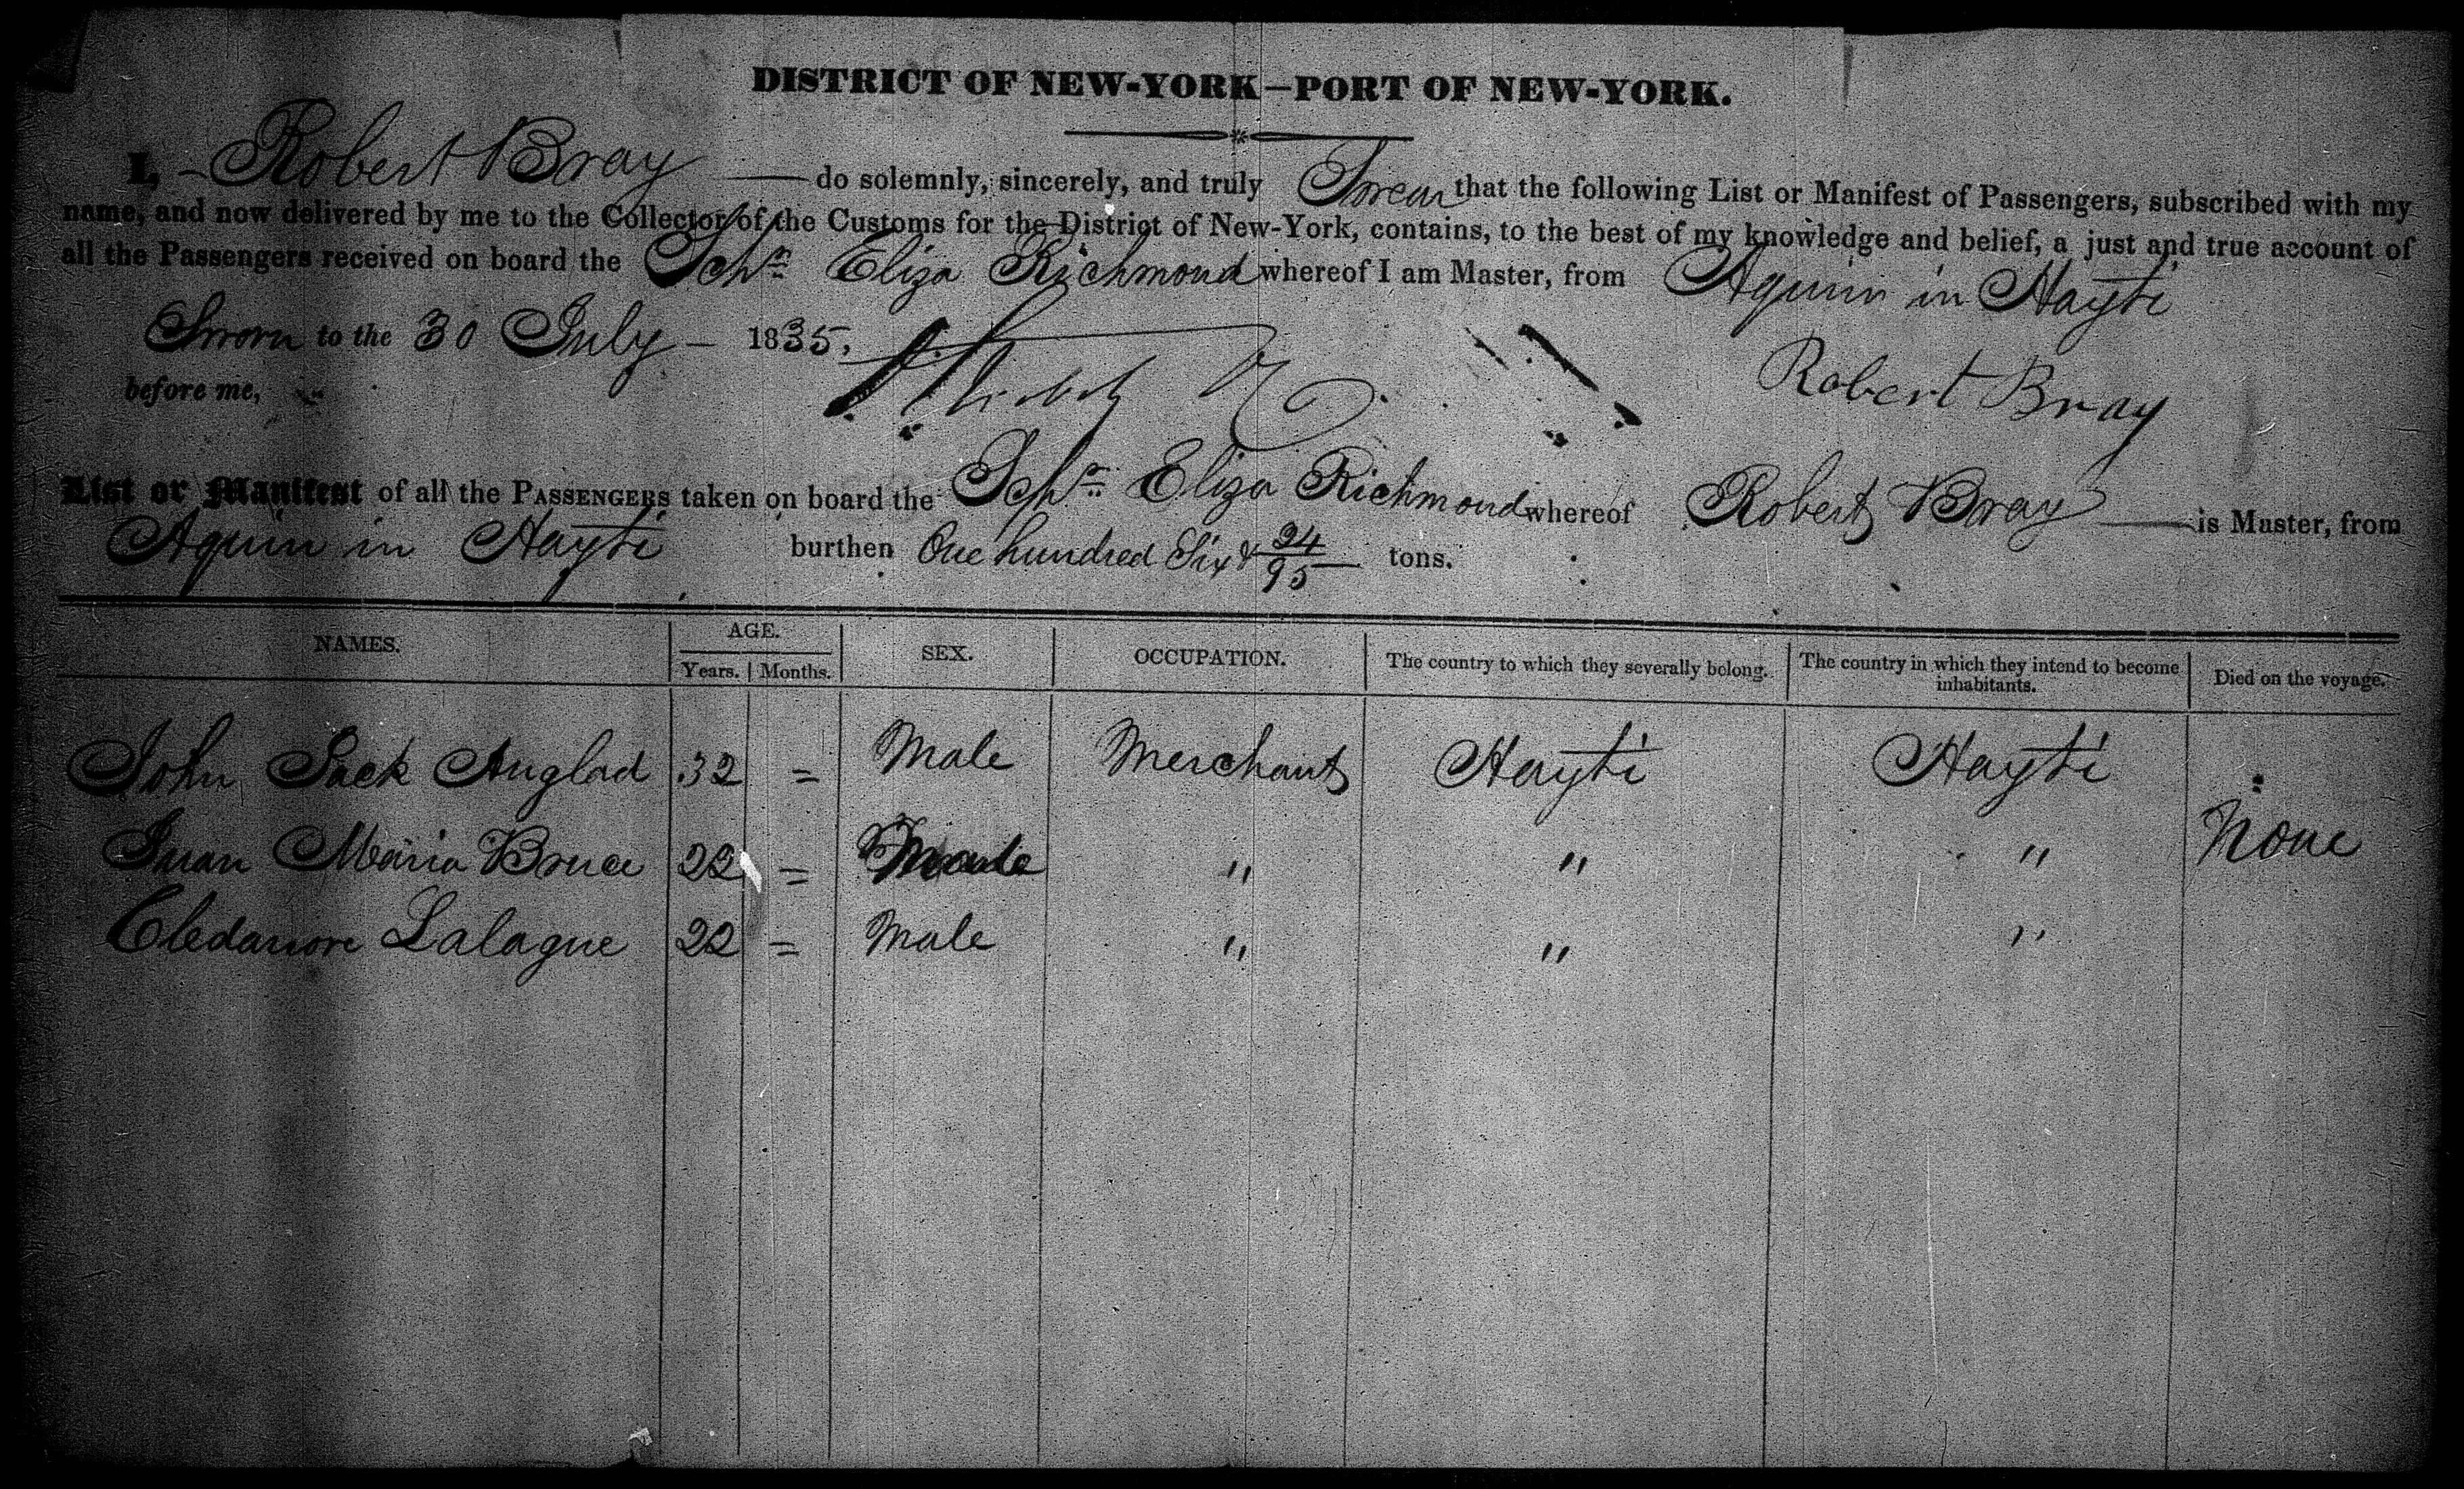 DISTRICT OF NEW-YORK—PORT OF NEW-YORK.
I, Robert Bray do solemnly, sincerely, and truly Swear that the following List or Manifest of Passengers, subscribed with my
name, and now delivered by me to the Collector of the Customs for the District of New-York, contains, to the best of my knowledge and belief, a just and true account of
all the Passengers received on board the Schr Eliza Richmond whereof I am Master, from Aquin in Hayti
Sworn to the 30 July — 1835,
before me,
Robert Bray
List or Manifest of all the PASSENGERS taken on board the Schr Eliza Richmond whereof Robert Bray is Master, from
Aquin in Hayti burthen One hundred Six & 94/95 tons.
NAMES. AGE. SEX. OCCUPATION. The country to which they severally belong. The country in which they intend to become inhabitants. Died on the voyage.
Years. Months.
John Jack Anglad 32 = Male Merchant Hayti Hayti
Juan Maria Bruce 22 = Male " " " None
Cledamore Lalague 22 = Male " " "